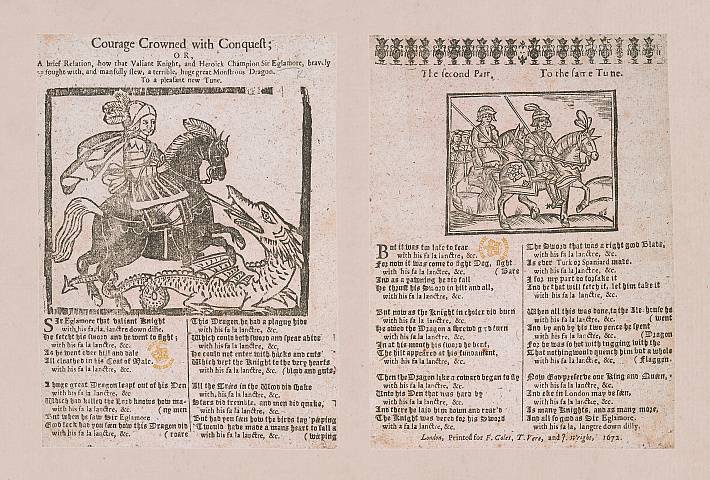 Courage Crowned with Conquest;
OR,
A brief Relation, how that Valiant Knight, and Heroick Champion Sir Eglamore, bravely
fought with, and manfully slew, a terrible, huge great Monstrous Dragon.
To a pleasant new Tune.
SIr Eglamore that valiant Knight
with his fa la, lanctre down dilly,
He fetcht his Sword and he went to fight;
with his fa la lanctre, &c.
As he went over hill and dale
All cloathed in his Coat of Male.
with his fa la lanctre, &c.
A huge great Dragon leapt out of his Den
with his fa la lanctre, &c.
Which had killed the Lord knows how ma-
with his fa la lanctre, &c. (ny men
But when he saw Sir Eglamore
God lack had you seen how this Dragon did
with his fa la lanctre, &c. (roare
This Dragon he had a plaguy hide
with his fa la lanctre, &c.
Which could both sword and spear abide
with his fa la lanctre, &c.
He could not enter with hacks and cuts
Which vext the Knight to the very hearts
with his fa la lanctre, &c. (blood and guts,
All the Trees in the Wood did shake
with his fa la lanctre, &c.
Stars did tremble, and men did quake,
with his fa la lanctre, &c.
But had you seen how the birds lay peeping
'Twould have made a mans heart to fall a
with his fa la lanctre, &c. (weeping
The second Part, To the same Tune.
BUt it was too late to fear
with his fa la lanctre, &c.
For now it was come to fight Dog, fight
with his fa la lanctre, &c. (Bare
And as a yawning he did fall
He thrust his Sword in hilt and all,
with his fa la lanctre, &c.
But now as the Knight in choler did burn
with his fa la lanctre, &c.
He owed the Dragon a shrewd good turn
with his fa la lanctre, &c.
In at his mouth his sword he bent,
The hilt appeared at his fundament,
with his fa la lanctre, &c.
Then the Dragon like a coward began to fly
with his fa la lanctre, &c.
Unto his Den that was hard by
with his fa la lanctre, &c.
And there he laid him down and roar'd
The Knight was vexed for his Sword
with a fa la lanctre, &c.
The Sword that was a right good Blade,
with his fa la lanctre, &c.
As ever Turk or Spaniard made.
with his fa la lanctre, &c.
I for my part do forsake it
And he that will fetch it, let him take it
with his fa la lanctre, &c.
When all this was done, to the Ale-house he
with his fa la lanctre, &c. (went
And by and by his two pence he spent
with his fa la lanctre, &c. (Dragon
For he was so hot with tugging with the
That nothing would quench him but a whole
with his fa la lanctre, &c. (Flaggon.
Now God preserve our King and Queen,
with his fa la lanctre, &c.
And eke in London may be seen,
with his fa la lanctre, &c.
As many Knights, and as many more,
And all so good as Sir Eglamore.
with his fa la, lanctre down dilly.
London, Printed for F. Coles, T. Vere, and J. Wright, 1672.